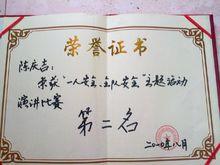 荣誉证书
陈庆吉：
荣获“一人安全，全队安全”主题活动
演讲比赛
第二名
二〇一〇年八月